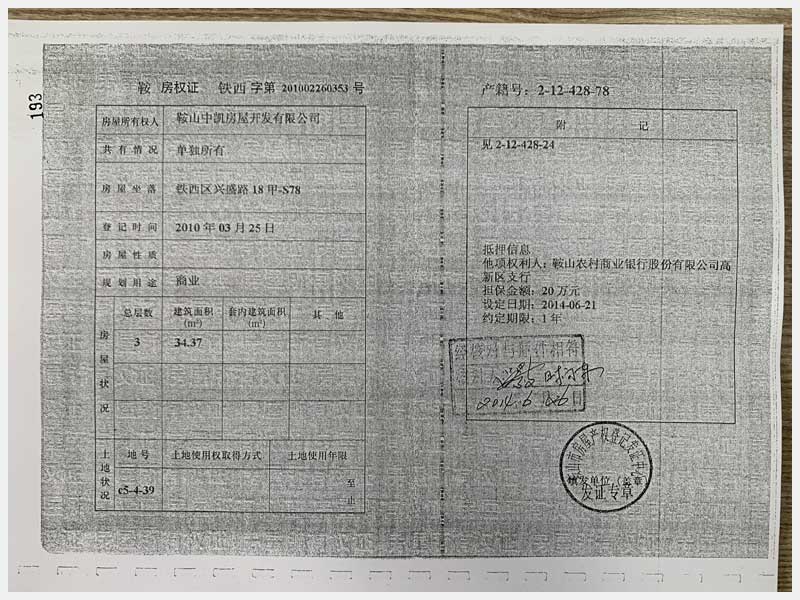 193
鞍 房权证 铁西 字第 201002260353 号
房屋所有权人 鞍山中凯房屋开发有限公司
共有情况 单独所有
房屋坐落 铁西区兴盛路 18 甲-S78
登记时间 2010 年 03 月 25 日
房屋性质
规划用途 商业
房屋状况
总层数 建筑面积 (m²) 套内建筑面积 (m²) 其他
3 34.37
土地状况
地号 土地使用权取得方式 土地使用年限
c5-4-39 至
止
产籍号：2-12-428-78
附 记
见 2-12-428-24
抵押信息
他项权利人：鞍山农村商业银行股份有限公司高
新区支行
担保金额：20 万元
设定日期：2014-06-21
约定期限：1 年
经核对与原件相符
核对人
2014.6 26日
鞍山市房屋产权登记发证中心
填发单位（盖章）
发证专章